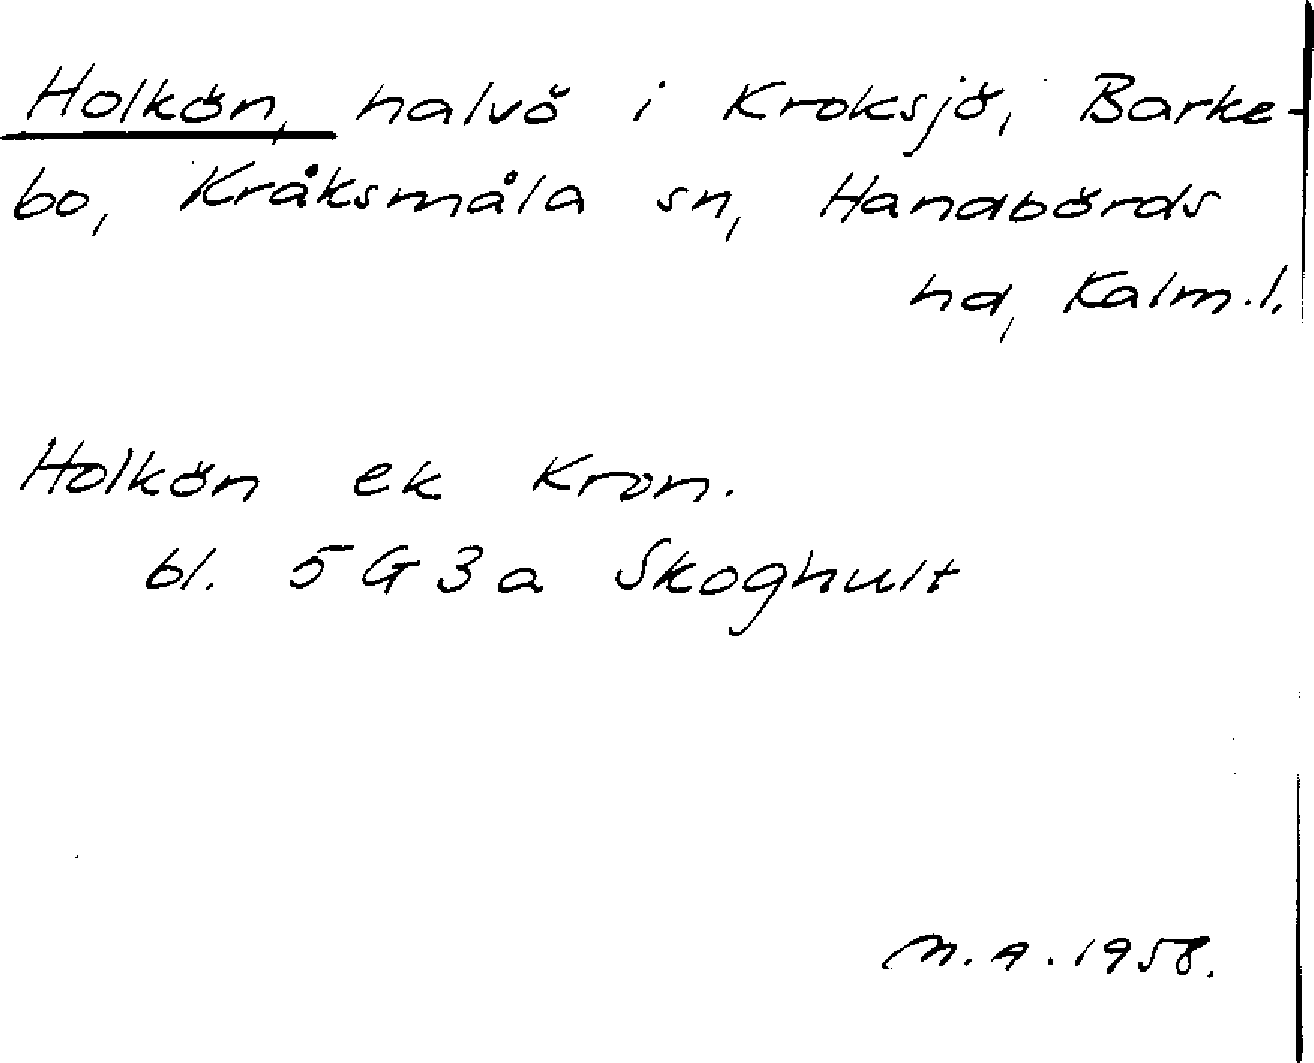 Holkön, halvö i Kroksjö, Barke-
bo, Kråksmåla sn, Handbörds
hd, Kalm.l.
Holkön ek Kron.
bl. 5 G 3 a Skoghult
M.A. 1958.